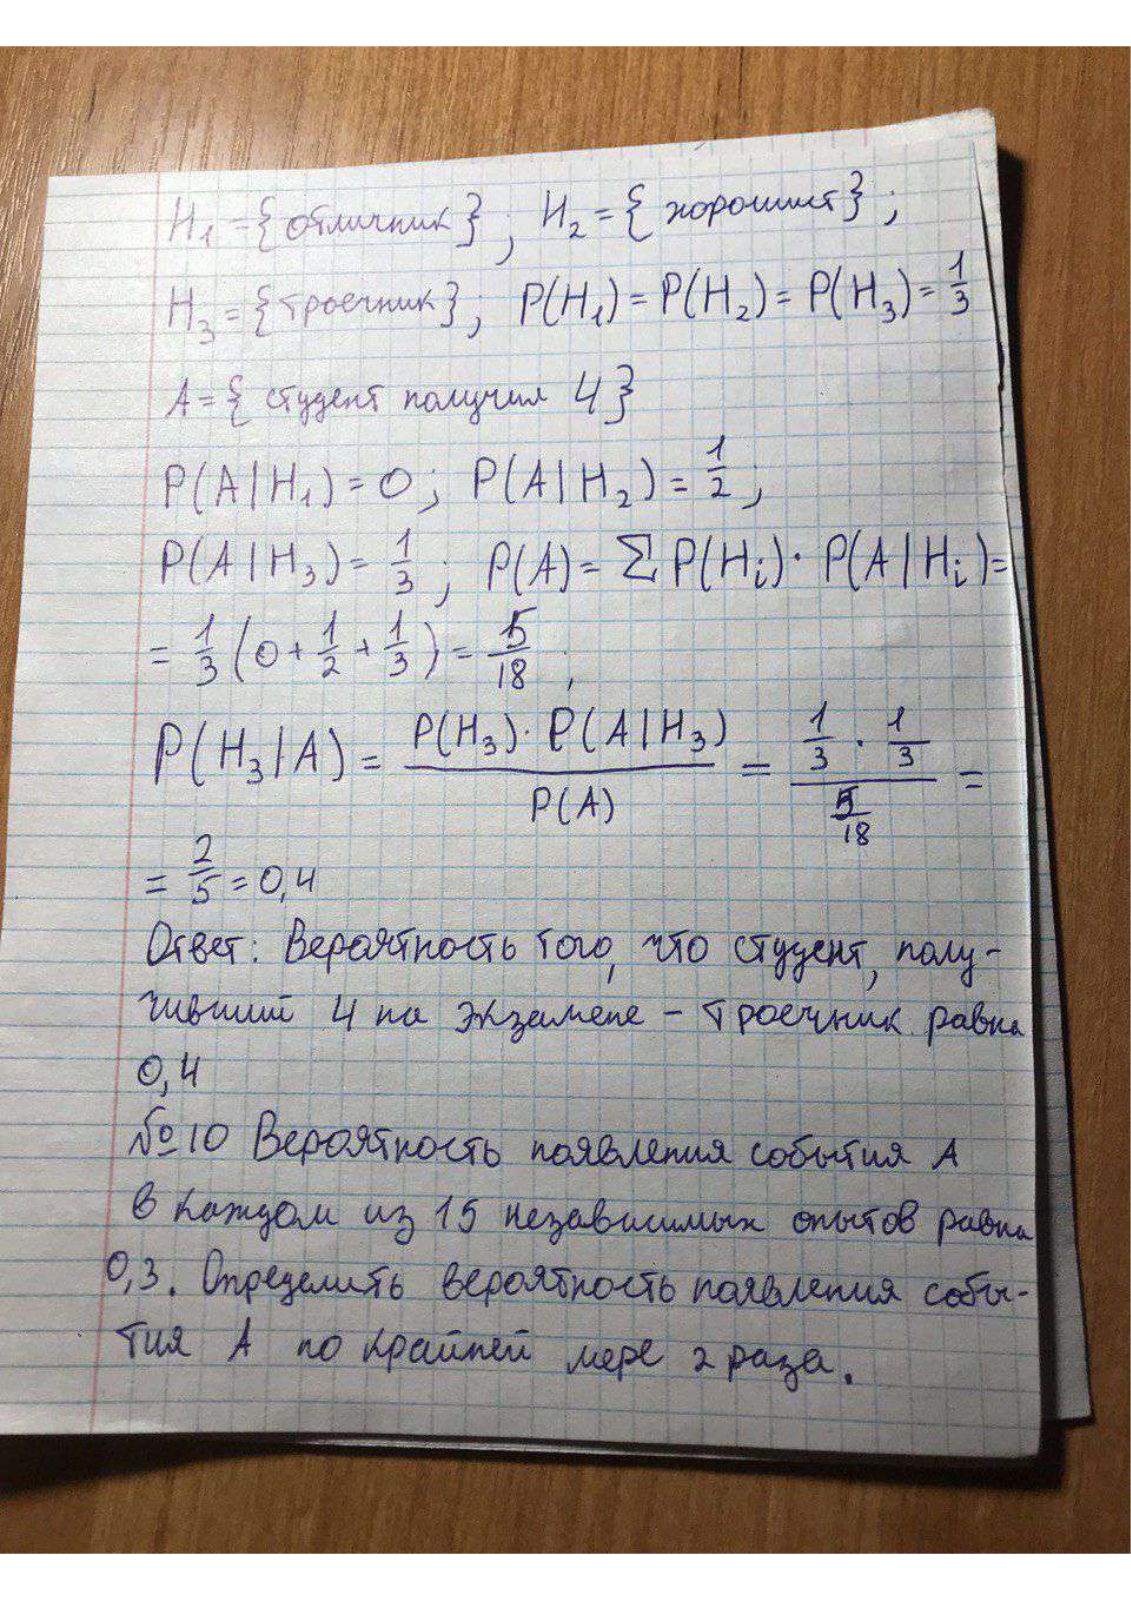 H₁={отличник}; H₂={хорошист};
H₃={троечник}; P(H₁)=P(H₂)=P(H₃)=1/3
A={студент получил 4}
P(A|H₁)=0; P(A|H₂)=1/2;
P(A|H₃)=1/3; P(A)=∑P(Hᵢ)·P(A|Hᵢ)=
=1/3(0+1/2+1/3)=5/18;
P(H₃|A)=P(H₃)·P(A|H₃)/P(A)=(1/3·1/3)/(5/18)=
=2/5=0,4
Ответ: Вероятность того, что студент, полу-
чивший 4 на экзамене – троечник равна
0,4
№10 Вероятность появления события A
в каждом из 15 независимых опытов равна
0,3. Определить вероятность появления собы-
тия A по крайней мере 2 раза.